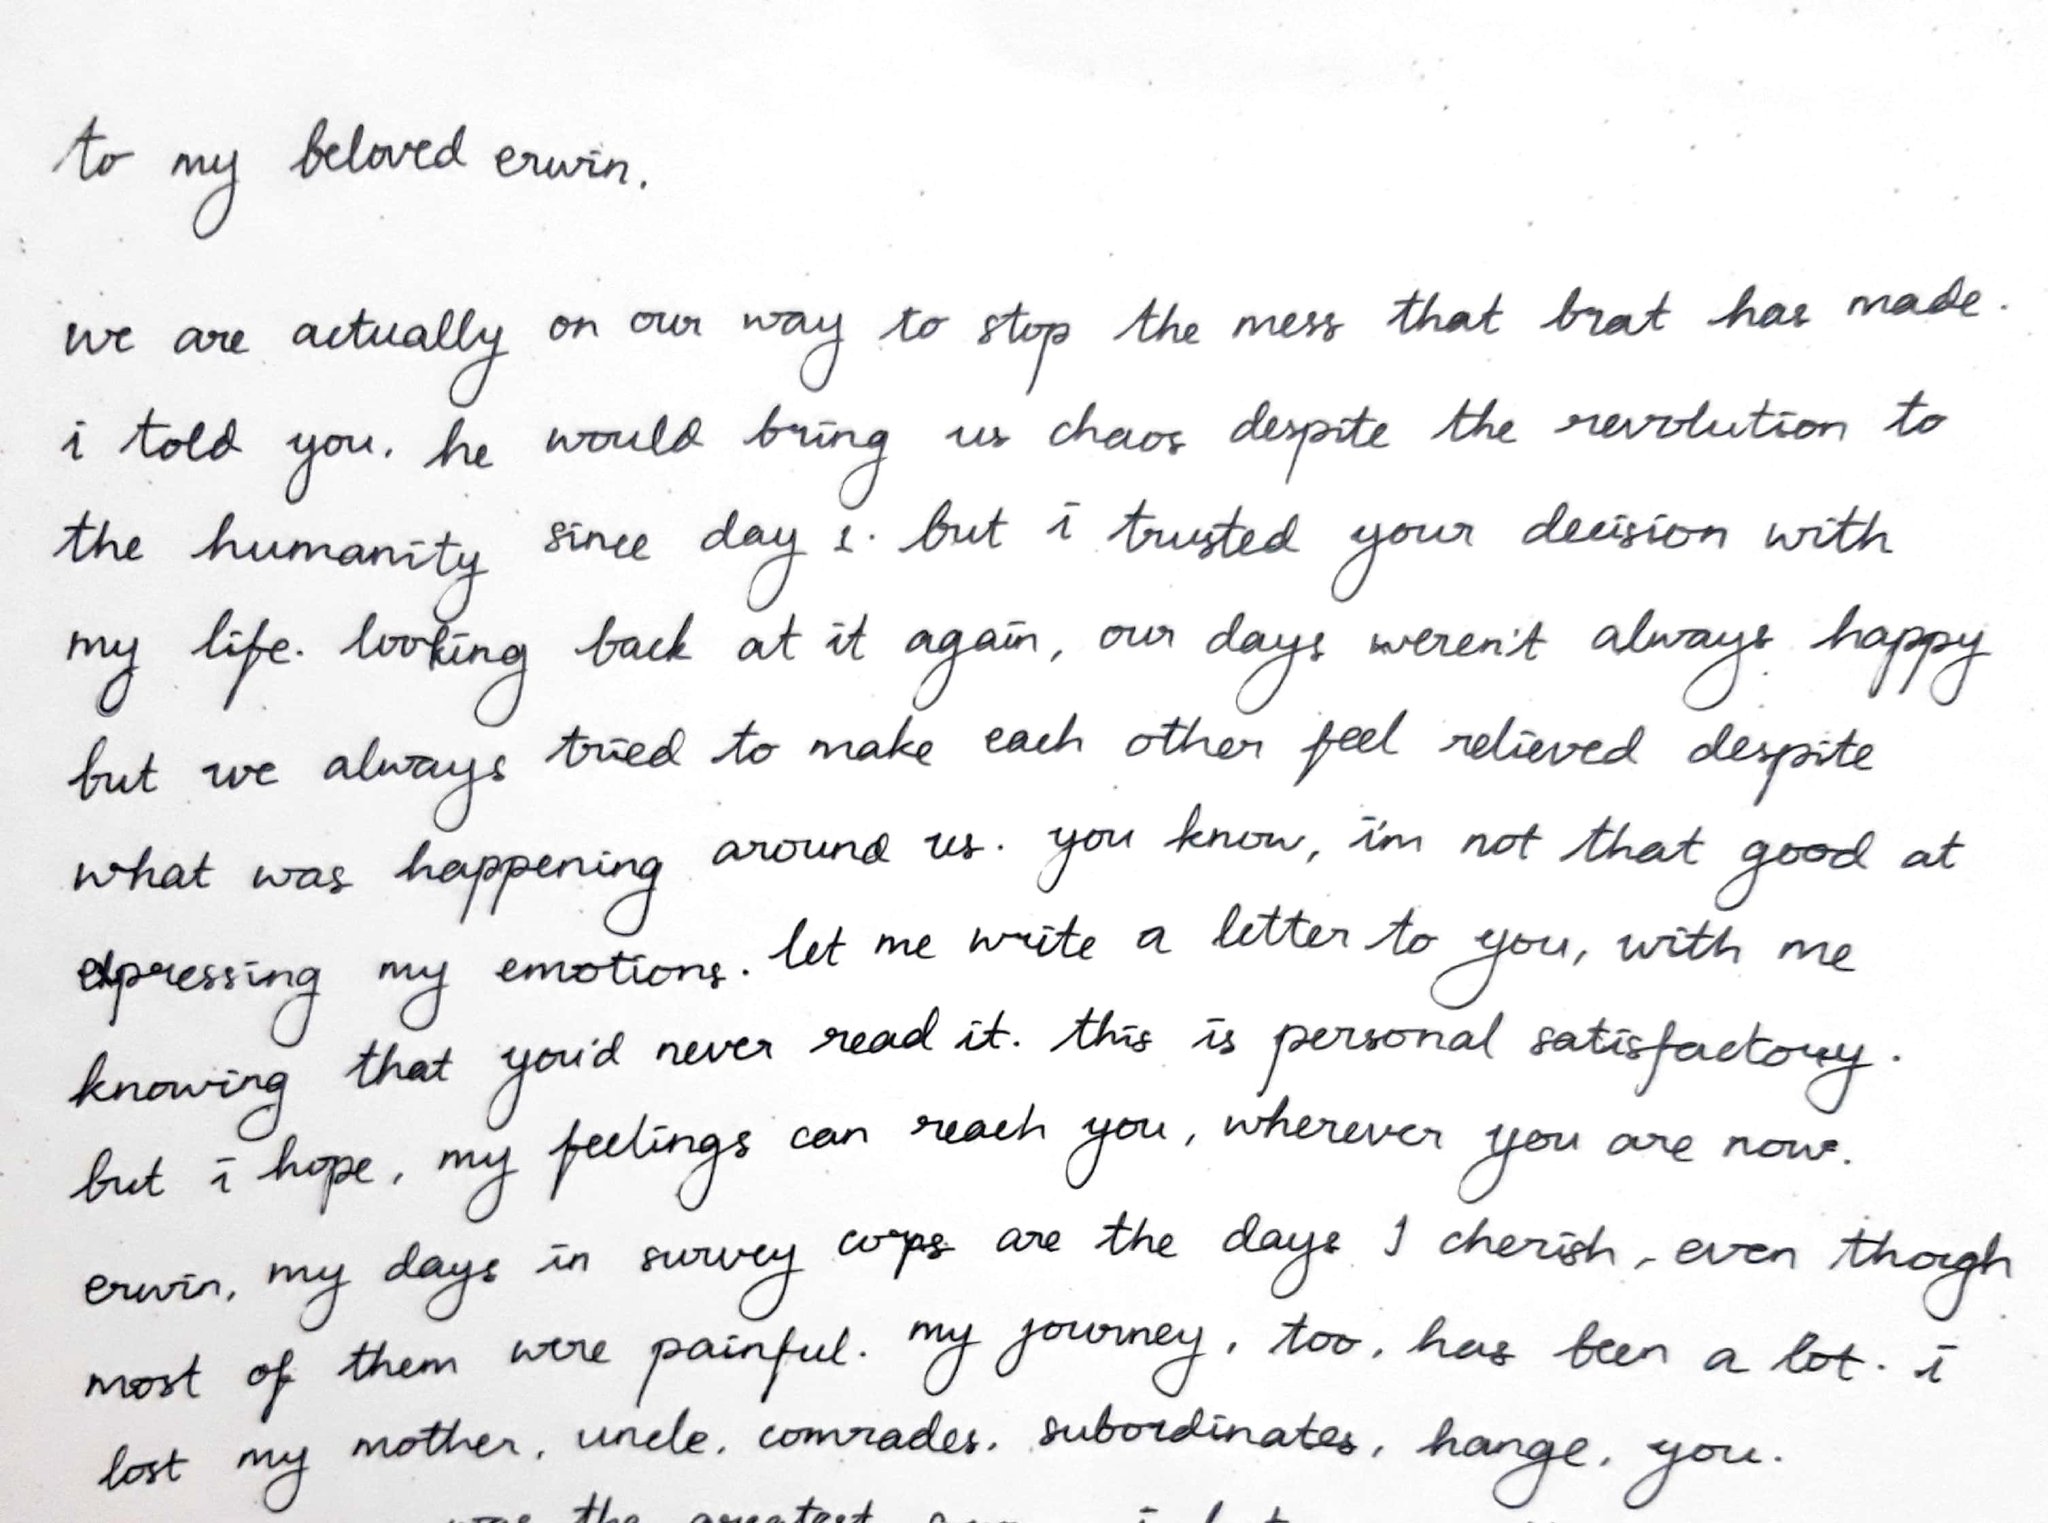 to my beloved erwin.
we are actually on our way to stop the mess that brat has made.
i told you, he would bring us chaos despite the revolution to
the humanity since day 1. but i trusted your decision with
my life. looking back at it again, our days weren't always happy
but we always tried to make each other feel relieved despite
what was happening around us. you know, i'm not that good at
expressing my emotions. let me write a letter to you, with me
knowing that you'd never read it. this is personal satisfactory.
but i hope, my feelings can reach you, wherever you are now.
erwin, my days in survey corps are the days I cherish, even though
most of them were painful. my journey, too, has been a lot. i
lost my mother, uncle, comrades, subordinates, hange, you.
was the greatest